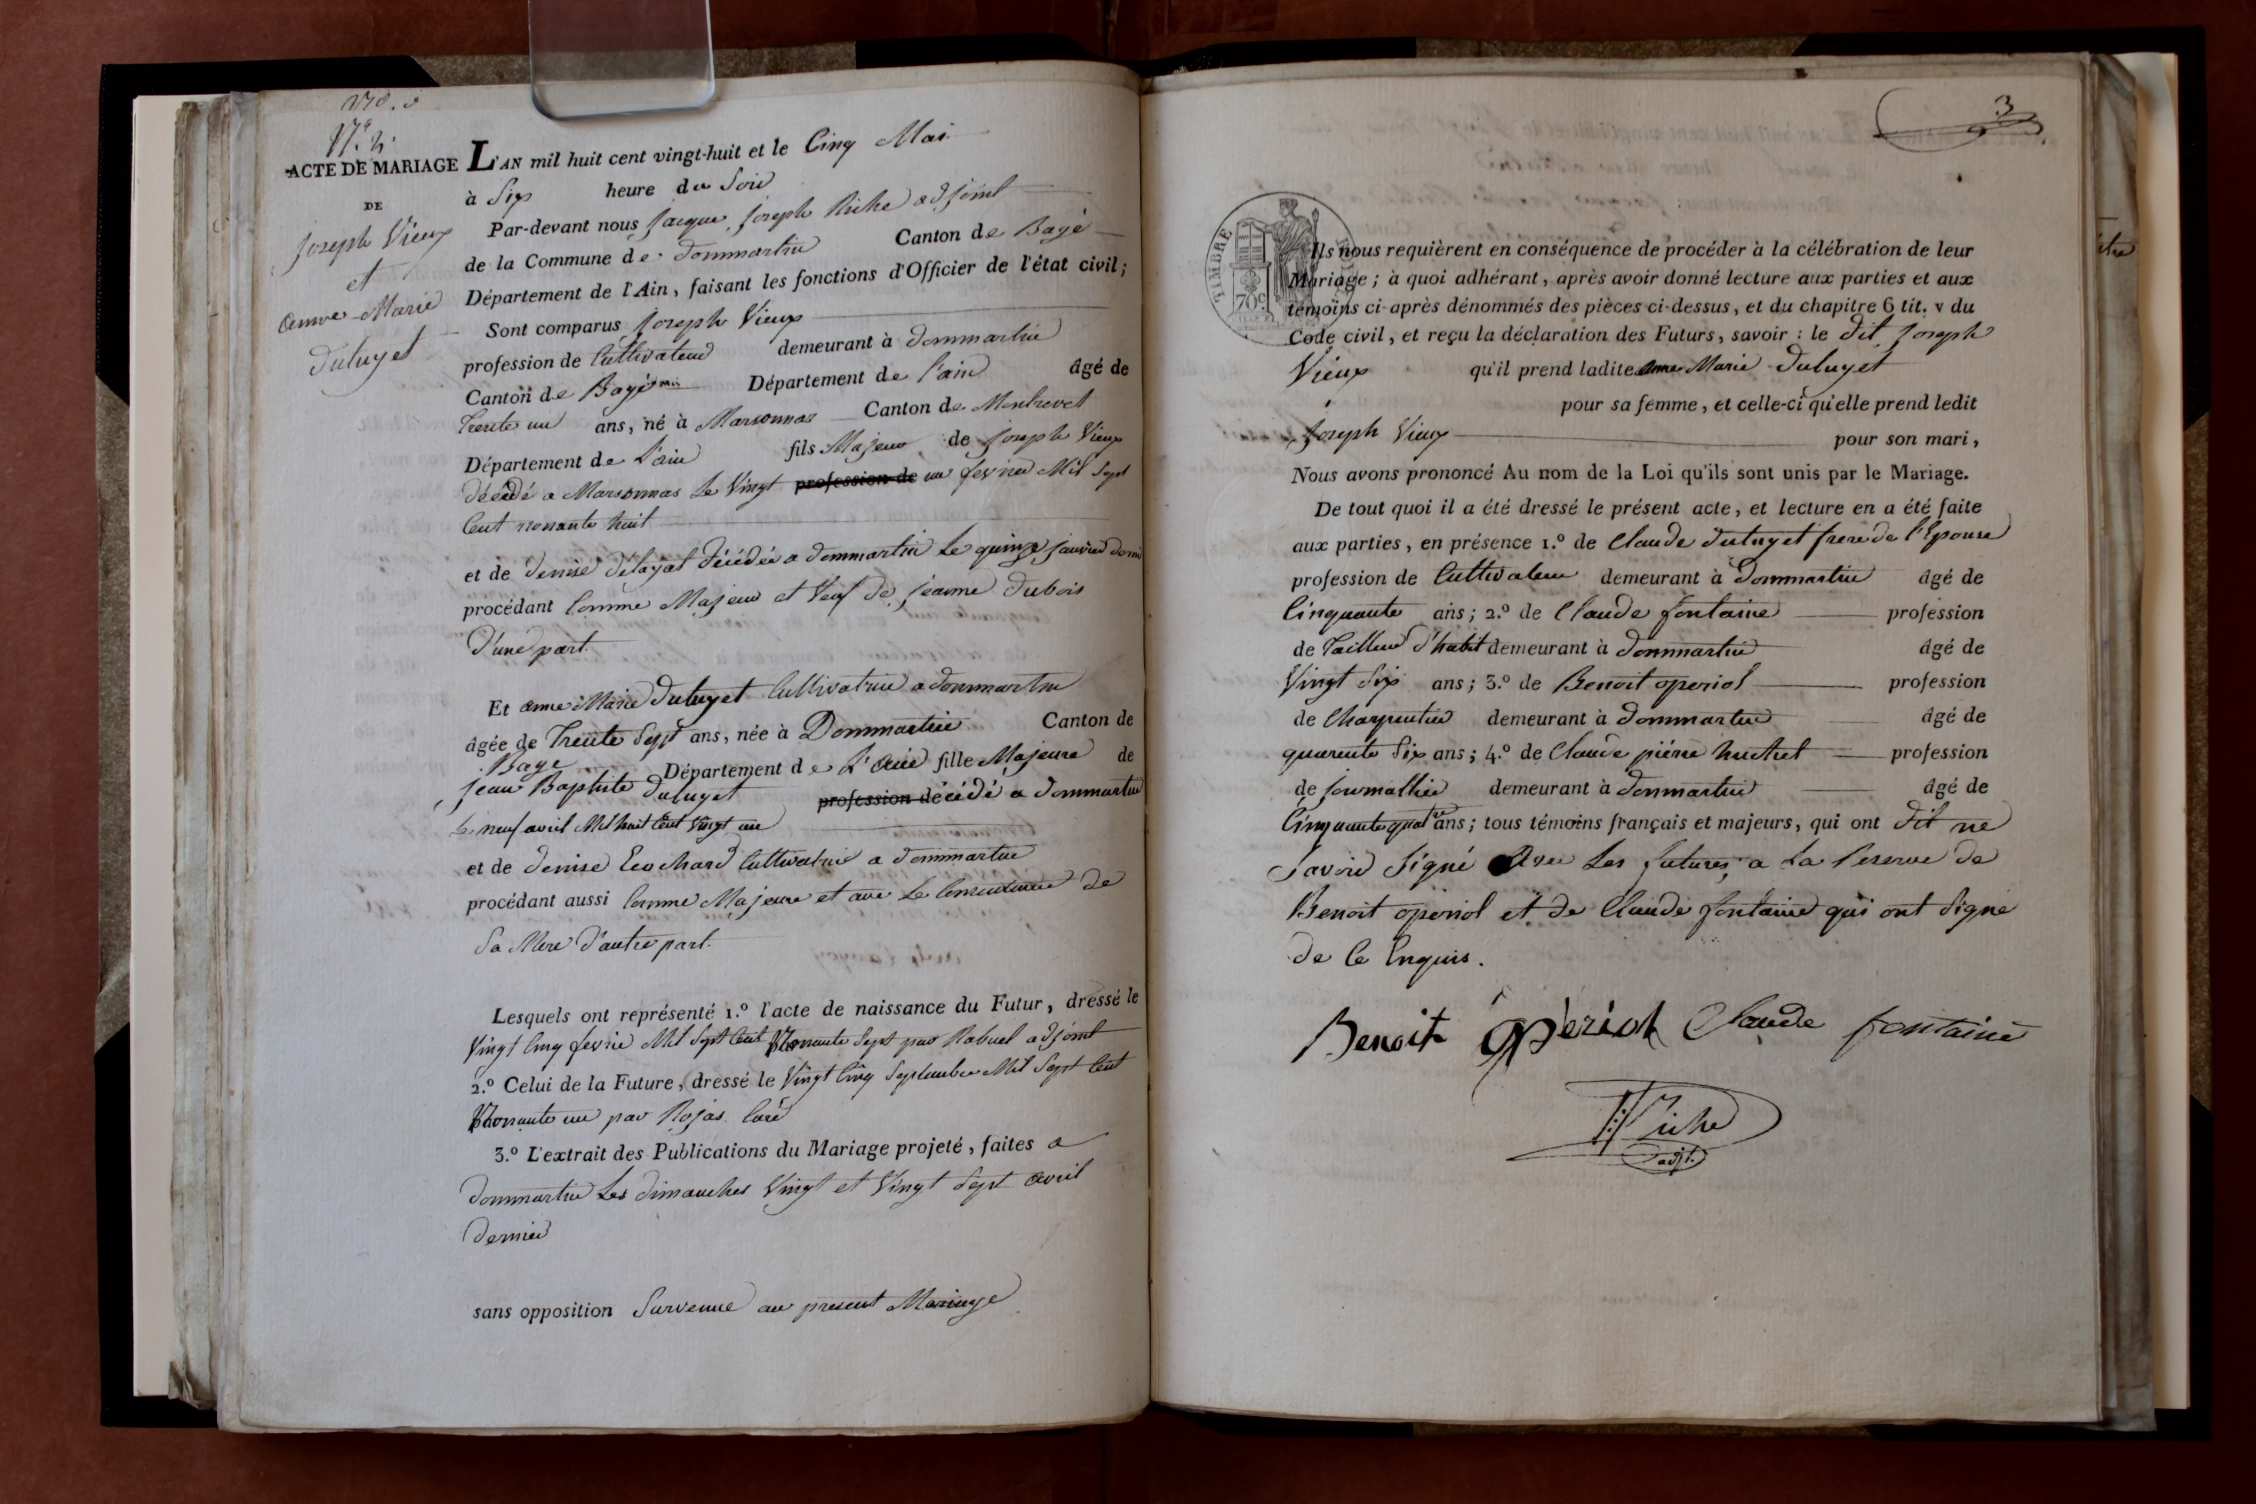 N°. 2
ACTE DE MARIAGE
DE
Joseph Vieux
et
anne Marie
Duluyet
L'AN mil huit cent vingt-huit et le Cinq Mai
à Six heure du Soir
Par-devant nous Jacque Joseph Riche adjoint
de la Commune de Dommartin Canton de Bagé
Département de l'Ain, faisant les fonctions d'Officier de l'état civil;
Sont comparus Joseph Vieux
profession de Cultivateur demeurant à Dommartin
Canton de Bagé Département de l'ain âgé de
Trente un ans, né à Marsonnas Canton de Montrevel
Département de L'ain fils Majeur de Joseph Vieux
décédé a Marsonnas Le Vingt profession de un fevrier Mil Sept
Cent nonante huit
et de denise délayat Décédée a dommartin Le quinze janvier
procédant Comme Majeur et Veuf de jeanne Dubois
D'une part.
Et anne Marie Duluyet Cultivatrice a dommartin
âgée de Trente Sept ans, née à Dommartin Canton de
Bage Département de L'ain fille Majeure de
jean Baptiste Duluyet profession décédé a dommartin
Le neuf avril Mil huit Cent Vingt un
et de denise Ecochard Cultivatrice a dommartin
procédant aussi Comme Majeure et avec Le Consentement de
Sa Mere D'autre part.
Lesquels ont représenté 1.º l'acte de naissance du Futur, dressé le
Vingt Cinq fevrier Mil Sept Cent Nonante Sept par Rabuel adjoint
2.º Celui de la Future, dressé le Vingt Cinq Septembre Mil Sept Cent
Nonante un par Rojas Curé
3.º L'extrait des Publications du Mariage projeté, faites a
Dommartin Les Dimanches Vingt et Vingt Sept avril
Dernier
sans opposition Survenue au present Mariage
3
TIMBRE
70 c
Ils nous requièrent en conséquence de procéder à la célébration de leur
Mariage; à quoi adhérant, après avoir donné lecture aux parties et aux
témoins ci-après dénommés des pièces ci-dessus, et du chapitre 6 tit. v du
Code civil, et reçu la déclaration des Futurs, savoir: le dit Joseph
Vieux qu'il prend ladite anne Marie Duluyet
pour sa femme, et celle-ci qu'elle prend ledit
Joseph Vieux pour son mari,
Nous avons prononcé Au nom de la Loi qu'ils sont unis par le Mariage.
De tout quoi il a été dressé le présent acte, et lecture en a été faite
aux parties, en présence 1.º de Claude Duluyet frere de l'Epouse
profession de Cultivateur demeurant à Dommartin âgé de
Cinquante ans; 2.º de Claude fontaine profession
de Tailleur d'habit demeurant à Dommartin âgé de
Vingt Six ans; 3.º de Benoit operiol profession
de Charpentier demeurant à Dommartin âgé de
quarente Six ans; 4.º de Claude pierre profession
de journallier demeurant à Dommartin âgé de
Cinquante quatre ans; tous témoins français et majeurs, qui ont dit ne
Savoir Signé avec Les futures, a La Reserve de
Benoit operiol et de Claude fontaine qui ont Signe
de Ce Enquis.
Benoit Opériol Claude fontaine
Riche
adjt.